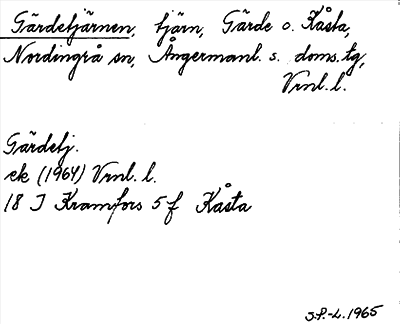 Gärdetjärnen, tjärn, Gärde o. Kåsta,
Nordingrå sn, Ångermanl. s. doms. tg,
Vrnl. l.
Gärdetj.
ek (1964) Vrnl. l.
18 I Kramfors 5 f Kåsta
S.P.-L. 1965